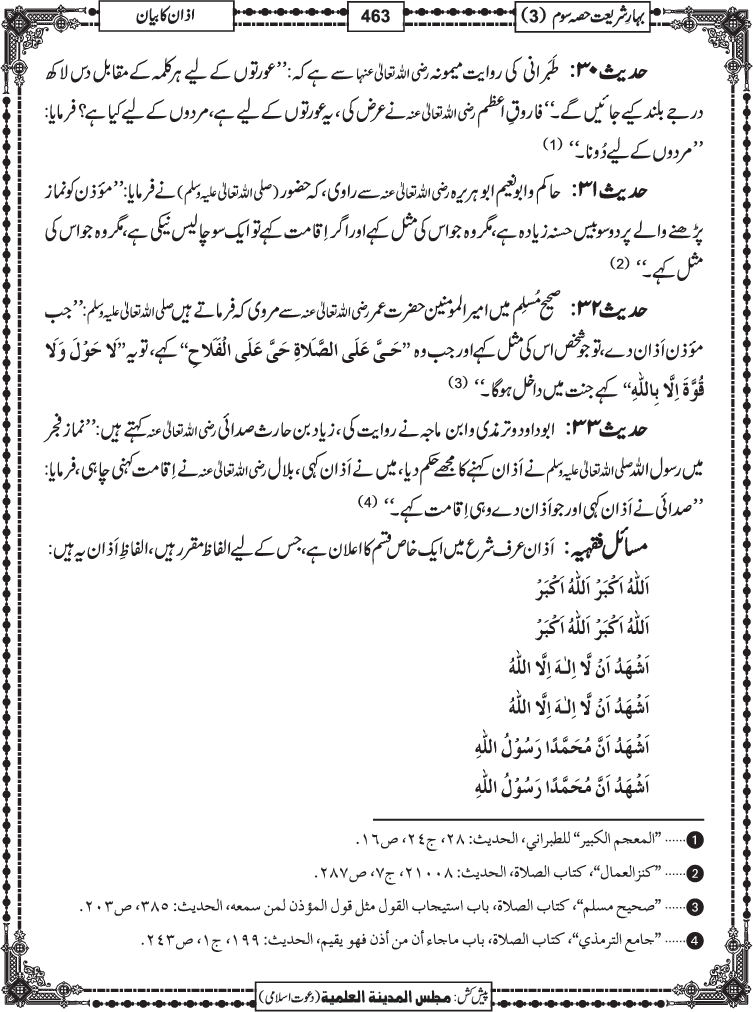 بہارِ شریعت حصہ سوم (3)
463
اذان کا بیان
حدیث ۳۰: طَبَرانی کی روایت میمونہ رضی اللہ تعالیٰ عنہا سے ہے کہ: ’’عورتوں کے لیے ہر کلمہ کے مقابل دس لاکھ
درجے بلند کیے جائیں گے۔‘‘ فاروقِ اعظم رضی اللہ تعالیٰ عنہ نے عرض کی، یہ عورتوں کے لیے ہے، مردوں کے لیے کیا ہے؟ فرمایا:
’’مردوں کے لیے دُونا۔‘‘ (1)
حدیث ۳۱: حاکم و ابو نعیم ابو ہریرہ رضی اللہ تعالیٰ عنہ سے راوی، کہ حضور (صلی اللہ تعالیٰ علیہ وسلم) نے فرمایا: ’’مؤذن کو نماز
پڑھنے والے پر دو سو بیس حسنہ زیادہ ہے، مگر وہ جو اس کی مثل کہے اور اگر اِقامت کہے تو ایک سو چالیس نیکی ہے، مگر وہ جو اس کی
مثل کہے۔‘‘ (2)
حدیث ۳۲: صحیح مُسلِم میں امیر المومنین حضرت عمر رضی اللہ تعالیٰ عنہ سے مروی کہ فرماتے ہیں صلی اللہ تعالیٰ علیہ وسلم: ’’جب
مؤذن اَذان دے، تو جو شخص اس کی مثل کہے اور جب وہ ”حَیَّ عَلَی الصَّلَاةِ حَیَّ عَلَی الْفَلَاحِ“ کہے، تو یہ ”لَا حَوْلَ وَلَا
قُوَّةَ اِلَّا بِاللّٰهِ“ کہے جنت میں داخل ہوگا۔‘‘ (3)
حدیث ۳۳: ابو داود و ترمذی و ابن ماجہ نے روایت کی، زیاد بن حارث صدائی رضی اللہ تعالیٰ عنہ کہتے ہیں: ’’نماز فجر
میں رسول اللہ صلی اللہ تعالیٰ علیہ وسلم نے اَذان کہنے کا مجھے حکم دیا، میں نے اَذان کہی، بلال رضی اللہ تعالیٰ عنہ نے اِقامت کہنی چاہی، فرمایا:
’’صدائی نے اَذان کہی اور جو اَذان دے وہی اِقامت کہے۔‘‘ (4)
مسائل فقہیہ: اَذان عرف شرع میں ایک خاص قسم کا اعلان ہے، جس کے لیے الفاظ مقرر ہیں، الفاظِ اَذان یہ ہیں:
اَللّٰهُ اَكْبَرْ اَللّٰهُ اَكْبَرْ
اَللّٰهُ اَكْبَرْ اَللّٰهُ اَكْبَرْ
اَشْهَدُ اَنْ لَّا اِلٰـهَ اِلَّا اللّٰهُ
اَشْهَدُ اَنْ لَّا اِلٰـهَ اِلَّا اللّٰهُ
اَشْهَدُ اَنَّ مُحَمَّدًا رَسُوْلُ اللّٰهِ
اَشْهَدُ اَنَّ مُحَمَّدًا رَسُوْلُ اللّٰهِ
1 ...... ”المعجم الكبير“ للطبراني، الحديث: ٢٨، ج٢٤، ص١٦.
2 ...... ”كنزالعمال“، كتاب الصلاة، الحديث: ٢١٠٠٨، ج٧، ص٢٨٧.
3 ...... ”صحيح مسلم“، كتاب الصلاة، باب استيجاب القول مثل قول المؤذن لمن سمعه، الحديث: ٣٨٥، ص٢٠٣.
4 ...... ”جامع الترمذي“، كتاب الصلاة، باب ماجاء أن من أذن فهو يقيم، الحديث: ١٩٩، ج١، ص٢٤٣.
پیش کش: مجلس المدینة العلمیة (دعوتِ اسلامی)